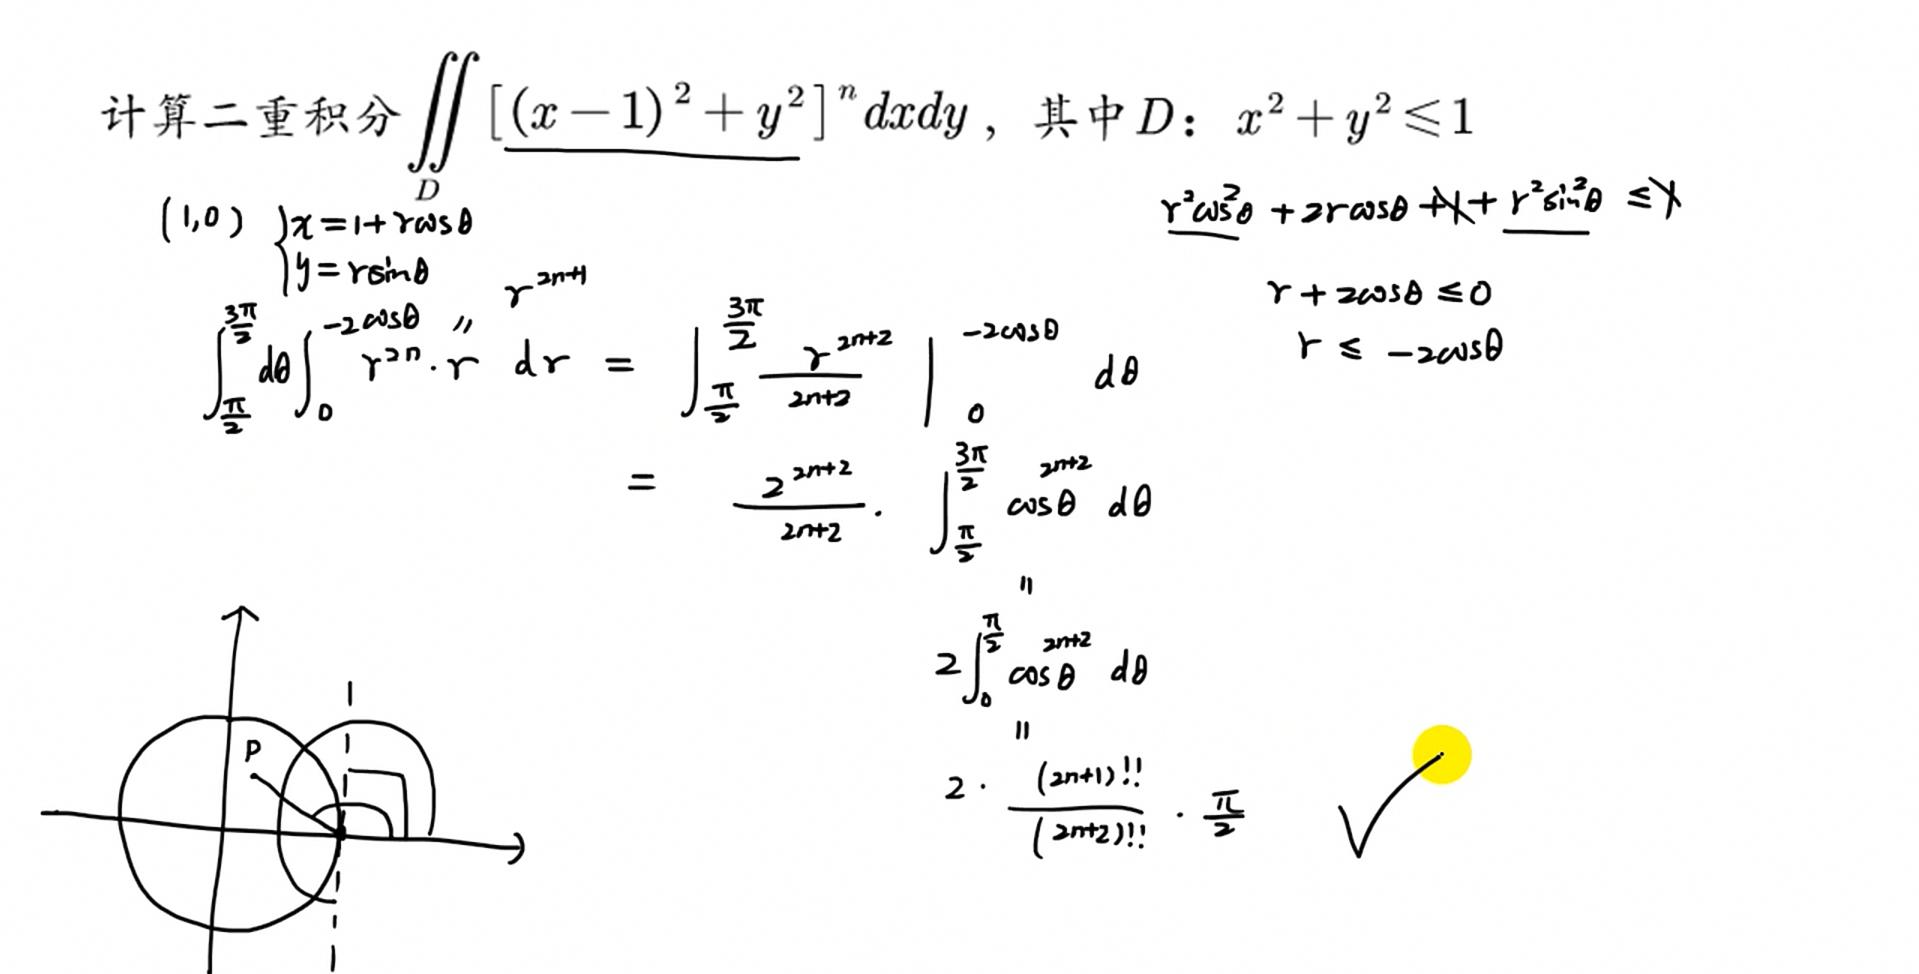 计算二重积分 ∬_D [(x-1)²+y²]ⁿ dxdy，其中D：x²+y²⩽1
(1,0) { x=1+rcosθ
y=rsinθ
r²cos²θ+2rcosθ+1+r²sin²θ≤1
r+2cosθ≤0
r≤-2cosθ
r^{2n+1}
∫_{π/2}^{3π/2} dθ ∫_0^{-2cosθ} r^{2n}·r dr = ∫_{π/2}^{3π/2} r^{2n+2}/(2n+2) |_0^{-2cosθ} dθ
= 2^{2n+2}/(2n+2) · ∫_{π/2}^{3π/2} cos^{2n+2}θ dθ
=
2∫_0^{π/2} cos^{2n+2}θ dθ
=
2· (2n+1)!!/(2n+2)!! · π/2
P